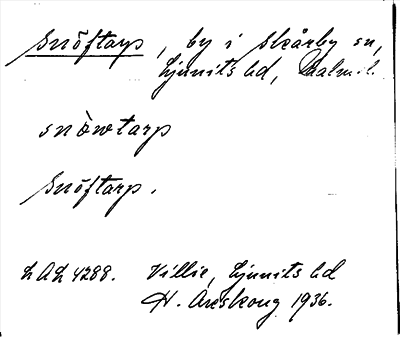 Snöftarp, by i Skårby sn,
Ljunits hd, Malm. l.
snòwtarp
Snöftarp.
LAL 4288. Villie, Ljunits hd
H. Areskoug 1936.